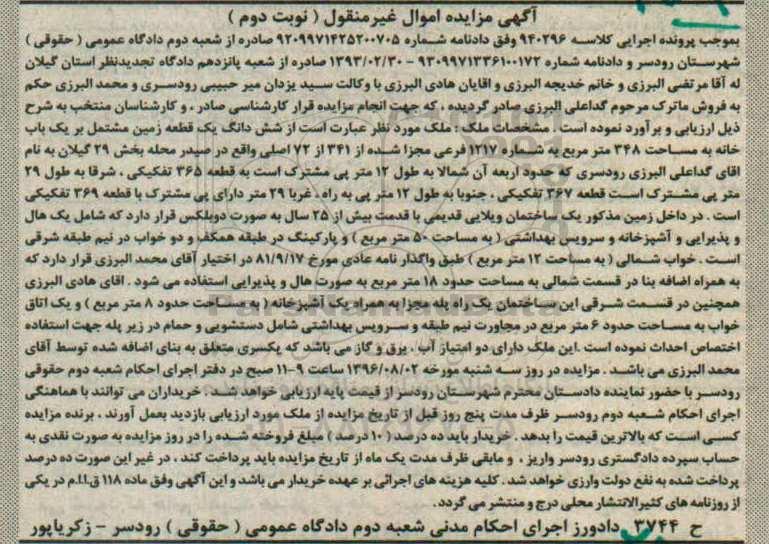 آگهی مزایده اموال غیرمنقول ( نوبت دوم )
بموجب پرونده اجرایی کلاسه ۹۴۰۲۹۶ وفق دادنامه شماره ۹۲۰۹۹۷۱۴۲۵۲۰۰۷۰۵ صادره از شعبه دوم دادگاه عمومی ( حقوقی )
شهرستان رودسر و دادنامه شماره ۹۳۰۹۹۷۱۳۳۶۱۰۰۱۷۲ - ۱۳۹۳/۰۲/۳۰ صادره از شعبه پانزدهم دادگاه تجدیدنظر استان گیلان
له آقا مرتضی البرزی و خانم خدیجه البرزی و اقایان هادی البرزی با وکالت سید یزدان میر حبیبی رودسری و محمد البرزی حکم
به فروش ماترک مرحوم گداعلی البرزی صادر گردیده ، که جهت انجام مزایده قرار کارشناسی صادر ، و کارشناسان منتخب به شرح
ذیل ارزیابی و برآورد نموده است . مشخصات ملک : ملک مورد نظر عبارت است از شش دانگ یک قطعه زمین مشتمل بر یک باب
خانه به مساحت ۳۴۸ متر مربع به شماره ۱۲۱۷ فرعی مجزا شده از ۳۴۱ از ۷۲ اصلی واقع در صیدر محله بخش ۲۹ گیلان به نام
اقای گداعلی البرزی رودسری که حدود اربعه آن شمالا به طول ۱۲ متر پی مشترک است به قطعه ۳۶۵ تفکیکی ، شرقا به طول ۲۹
متر پی مشترک است قطعه ۳۶۷ تفکیکی ، جنوبا به طول ۱۲ متر پی به راه ، غربا ۲۹ متر دارای پی مشترک با قطعه ۳۶۹ تفکیکی
است . در داخل زمین مذکور یک ساختمان ویلایی قدیمی با قدمت بیش از ۲۵ سال به صورت دوبلکس قرار دارد که شامل یک هال
و پذیرایی و آشپزخانه و سرویس بهداشتی ( به مساحت ۵۰ متر مربع ) و پارکینگ در طبقه همکف و دو خواب در نیم طبقه شرقی
است . خواب شمالی ( به مساحت ۱۲ متر مربع ) طبق واگذار نامه عادی مورخ ۸۱/۹/۱۷ در اختیار آقای محمد البرزی قرار دارد که
به همراه اضافه بنا در قسمت شمالی به مساحت حدود ۱۸ متر مربع به صورت هال و پذیرایی استفاده می شود . اقای هادی البرزی
همچنین در قسمت شرقی این ساختمان یک راه پله مجزا به همراه یک آشپزخانه ( به مساحت حدود ۸ متر مربع ) و یک اتاق
خواب به مساحت حدود ۶ متر مربع در مجاورت نیم طبقه و سرویس بهداشتی شامل دستشویی و حمام در زیر پله جهت استفاده
اختصاص احداث نموده است .این ملک دارای دو امتیاز آب ، برق و گاز می باشد که یکسری متعلق به بنای اضافه شده توسط آقای
محمد البرزی می باشد . مزایده در روز سه شنبه مورخه ۱۳۹۶/۰۸/۰۲ ساعت ۹-۱۱ صبح در دفتر اجرای احکام شعبه دوم حقوقی
رودسر با حضور نماینده دادستان محترم شهرستان رودسر از قیمت پایه ارزیابی خواهد شد . خریداران می توانند با هماهنگی
اجرای احکام شعبه دوم رودسر ظرف مدت پنج روز قبل از تاریخ مزایده از ملک مورد ارزیابی بازدید بعمل آورند ، برنده مزایده
کسی است که بالاترین قیمت را بدهد . خریدار باید ده درصد ( ۱۰ درصد ) مبلغ فروخته شده را در روز مزایده به صورت نقدی به
حساب سپرده دادگستری رودسر واریز ، و مابقی ظرف مدت یک ماه از تاریخ مزایده باید پرداخت کند ، در غیر این صورت ده درصد
پرداخت شده به نفع دولت واریزی خواهد شد . کلیه هزینه های اجرائی بر عهده خریدار می باشد و این آگهی وفق ماده ۱۱۸ ق.ا.ا.م در یکی
از روزنامه های کثیرالانتشار محلی درج و منتشر می گردد.
ح ۳۷۴۴ دادورز اجرای احکام مدنی شعبه دوم دادگاه عمومی ( حقوقی ) رودسر - زکریاپور